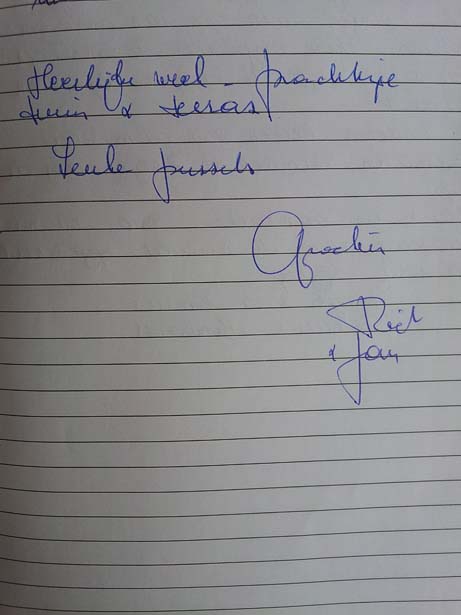 Heerlijke week - prachtige
tuin & terras
Leuke puzzels
Riet
& Jan